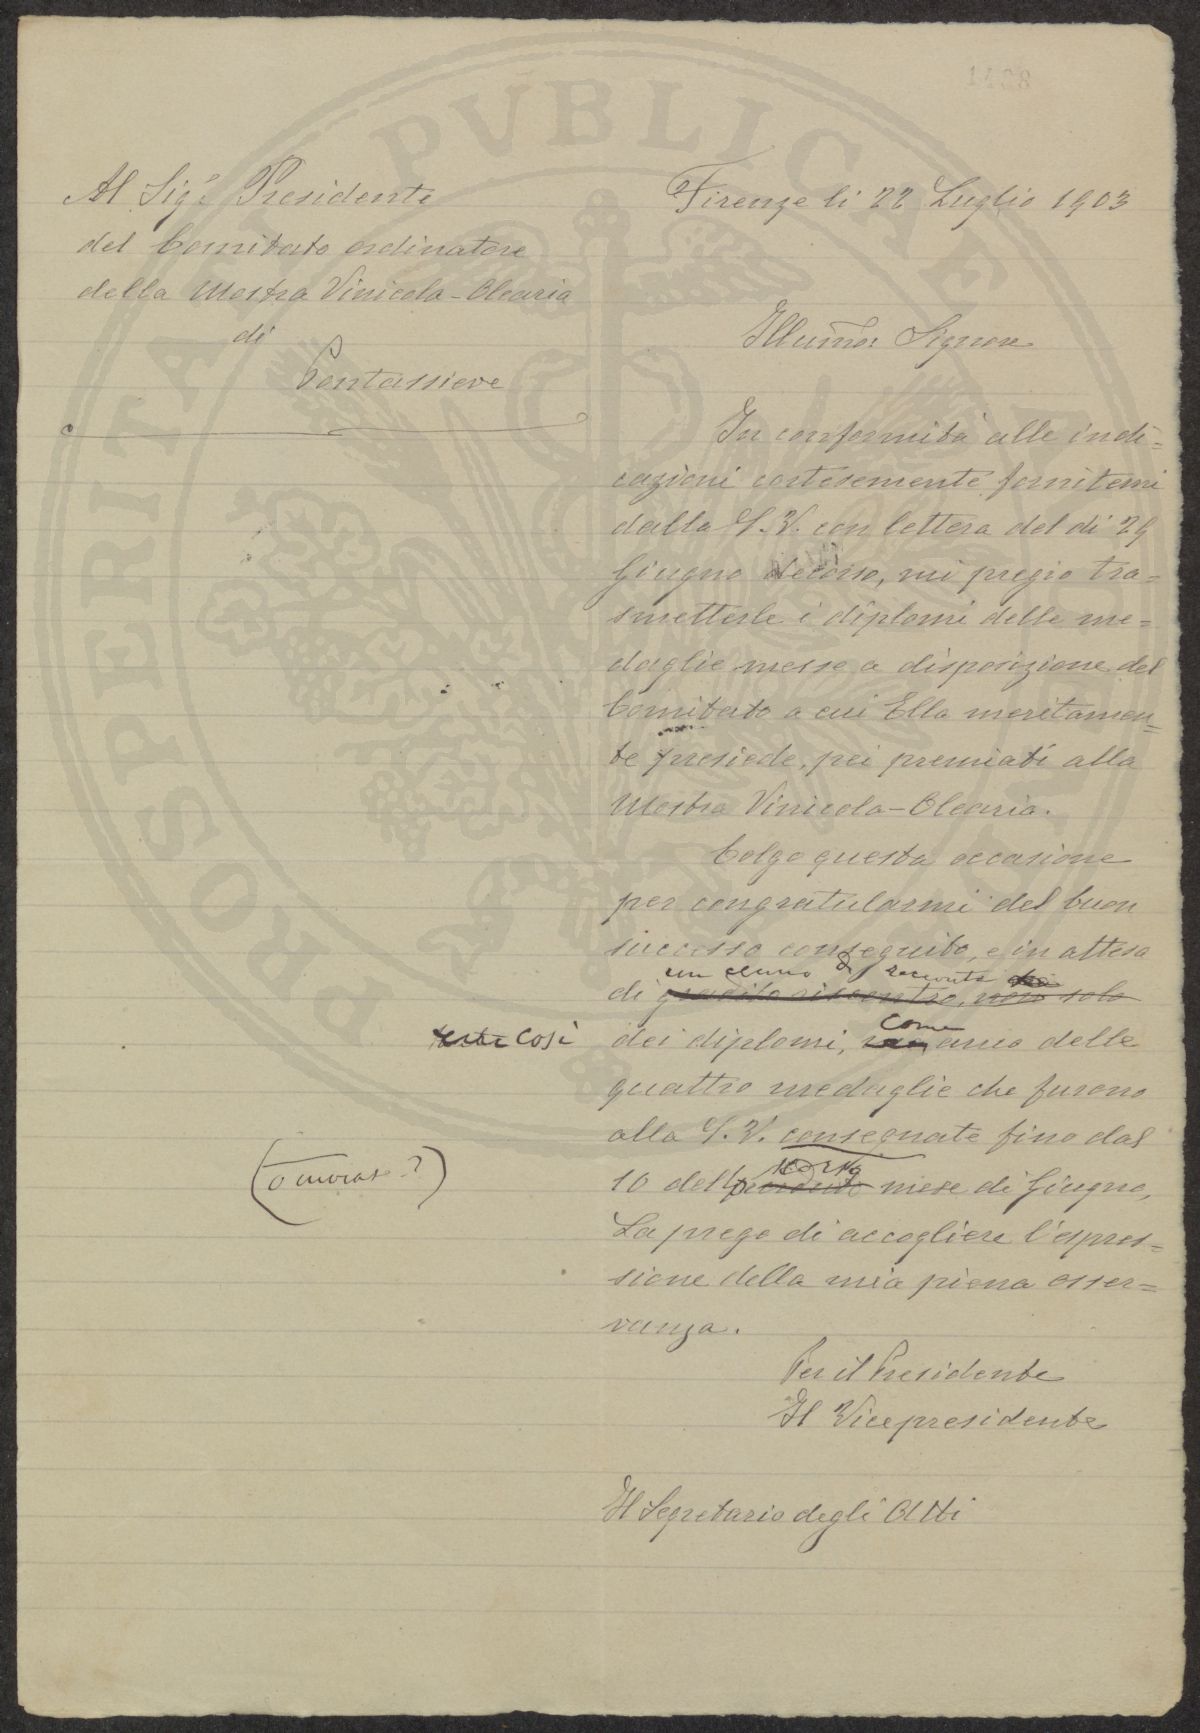 1428
Al Sigr. Presidente
del Comitato ordinatore
della Mostra Vinicola-Olearia
di
Pontassieve
Firenze li 22 Luglio 1903
Illumo: Signore
In conformità alle indi=
cazioni cortesemente fornitemi
dalla S.V. con lettera del dì 29
Giugno decorso, mi pregio tra=
smetterle i diplomi delle me=
daglie messe a disposizione del
Comitato a cui Ella meritamen=
te presiede, pei premiati alla
Mostra Vinicola-Olearia.
Colgo questa occasione
per congratularmi del buon
successo conseguito, e in attesa
un cenno di
di gradito riscontro, non solo
così dei diplomi, come anco delle
quattro medaglie che furono
alla S.V. consegnate fino dal
10 del mese di Giugno,
La prego di accogliere l'espres=
sione della mia piena osser=
vanza.
Per il Presidente
Il Vicepresidente
Il Segretario degli Atti
PROSPERITATI PVBLICAE